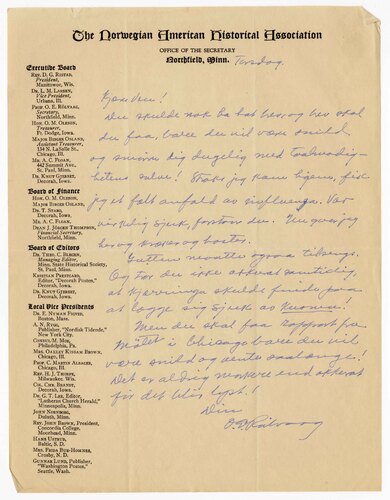 The Norwegian American Historical Association
OFFICE OF THE SECRETARY
Northfield, Minn.
Torsdag
Executive Board
REV. D. G. RISTAD,
President,
Manitowoc, Wis.
DR. L. M. LARSEN,
Vice President,
Urbana, Ill.
PROF. O. E. RÖLVAAG,
Secretary,
Northfield, Minn.
HON. O. M. OLESON,
Treasurer,
Ft. Dodge, Iowa.
MAJOR BIRGER OSLAND,
Assistant Treasurer,
134 N. LaSalle St.,
Chicago, Ill.
MR. A. C. FLOAN,
442 Summit Ave.,
St. Paul, Minn.
DR. KNUT GJERSET,
Decorah, Iowa.
Board of Finance
HON. O. M. OLESON,
MAJOR BIRGER OSLAND,
DR. T. STABO,
Decorah, Iowa.
MR. A. C. FLOAN,
DEAN J. JÖRGEN THOMPSON,
Financial Secretary,
Northfield, Minn.
Board of Editors
DR. THEO. C. BLEGEN,
Managing Editor,
Minn. State Historical Society,
St. Paul, Minn.
KRISTIAN PRESTGARD,
Editor, "Decorah Posten,"
Decorah, Iowa.
DR. KNUT GJERSET,
Decorah, Iowa.
Local Vice Presidents
DR. E. NYMAN FIGVED,
Boston, Mass.
A. N. RYGG,
Publisher, "Nordisk Tidende,"
New York City.
CONRAD, M. MOE,
Philadelphia, Pa.
MRS. OAKLEY KISSAM BROWN,
Chicago, Ill.
PROF. C. MARTIN ALSAGER,
Chicago, Ill.
REV. H. J. THORPE,
Milwaukee, Wis.
CH. CHR. BRANDT,
Decorah, Iowa.
DR. G. T. LEE, Editor,
"Lutheran Church Herald,"
Minneapolis, Minn.
JOHN NORDBOM,
Duluth, Minn.
REV. JOHN BROWN, President,
Concordia College,
Moorhead, Minn.
HANS USTRUD,
Baltic, S. D.
MRS. FRIDA BUE-HOMNES,
Crosby, N. Dak.
GUNNAR LUND, Publisher,
"Washington Posten,"
Seattle, Wash.
Kjære Ven!
Du skulde nok ha hat brev, og brev skal
du faa, bare du vil være snild
og smøre dig dugelig med Taalmodig-
hetens salve! Straks jeg kom hjem, fik
jeg et falt anfald av influenza. Var
virkelig sjuk, forstaar du. Nu gaar jeg
her og kræker og hoster.
Gutten maatte ogsaa tilsengs.
Og for du ikke akkurat samtidig,
at kjærringa skulde finde paa
at lægge sig sjuk av
Men du skal faa rapport fra
Møtet i Chicago bare du vil
være snild og vente saalænge!
Det er aldrig morsere end akkurat
før det blir lyst!
Din
O. E. Rölvaag